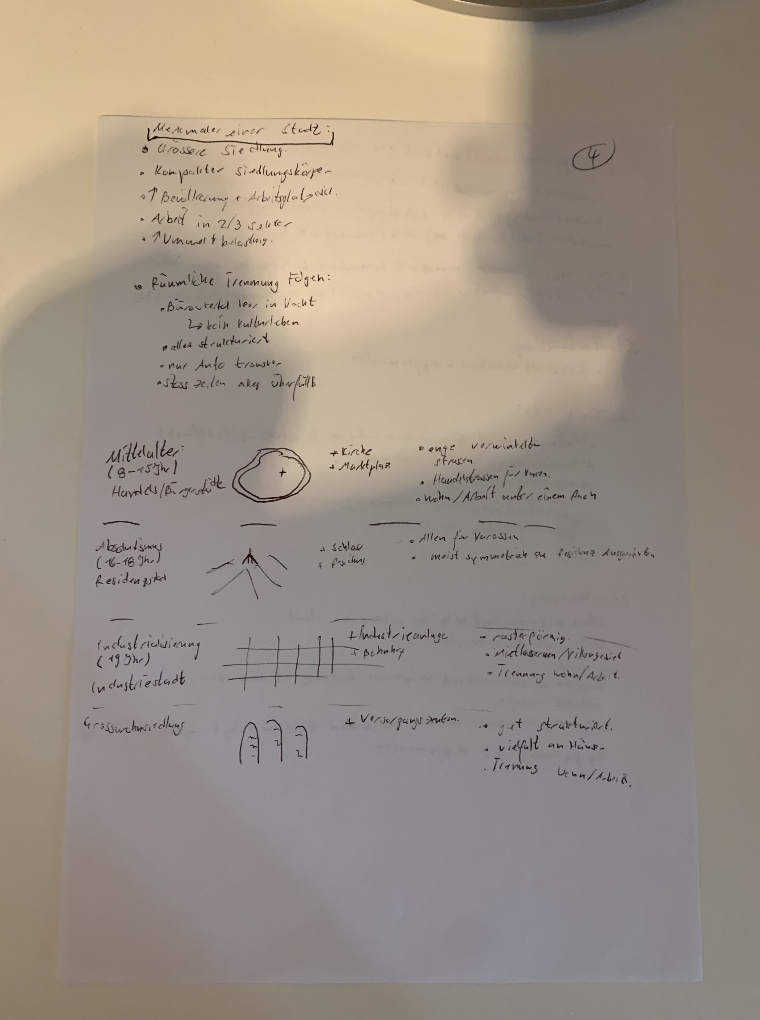 Merkmale einer Stadt:
4
• Grössere Siedlung.
• Kompakter Siedlungskörper
• ↑ Bevölkerung + Arbeitsplatz
• Arbeit in 2/3 sektor
• ↑ Umwelt belastung.
• Räumliche Trennung Folgen:
• Büroviertel leer in Nacht
↳ kein Kulturleben
• alles strukturiert
• nur Auto transpor
• Stoss zeiten alles überfüllt
Mittelalter:
(8-15 Jhr)
Handels/Bürgerstädte
+ Kirche
+ Marktplaz
• enge verwinkelte
strasen
• Handelsstrassen für Waren
• Wohn/Arbeit unter einem Dach
Absolutismus
(16-18 Jhr)
Residenzstadt
+ Schloss
• Allen für
• meist symmetrisch zu Residenz Ausgerichten
Industrialisierung
(19 Jhr)
Industriestadt
+ Industrieanlage
+ Bahnhof
• rasterförmig
• Mietkasernen/
• Trennung Wohn/Arbeit.
Grosswohnsiedlung
+ Versorgungszentren.
• gut strukturiert.
• vielfalt an Häuser
• Trennung Wohn/Arbeit.